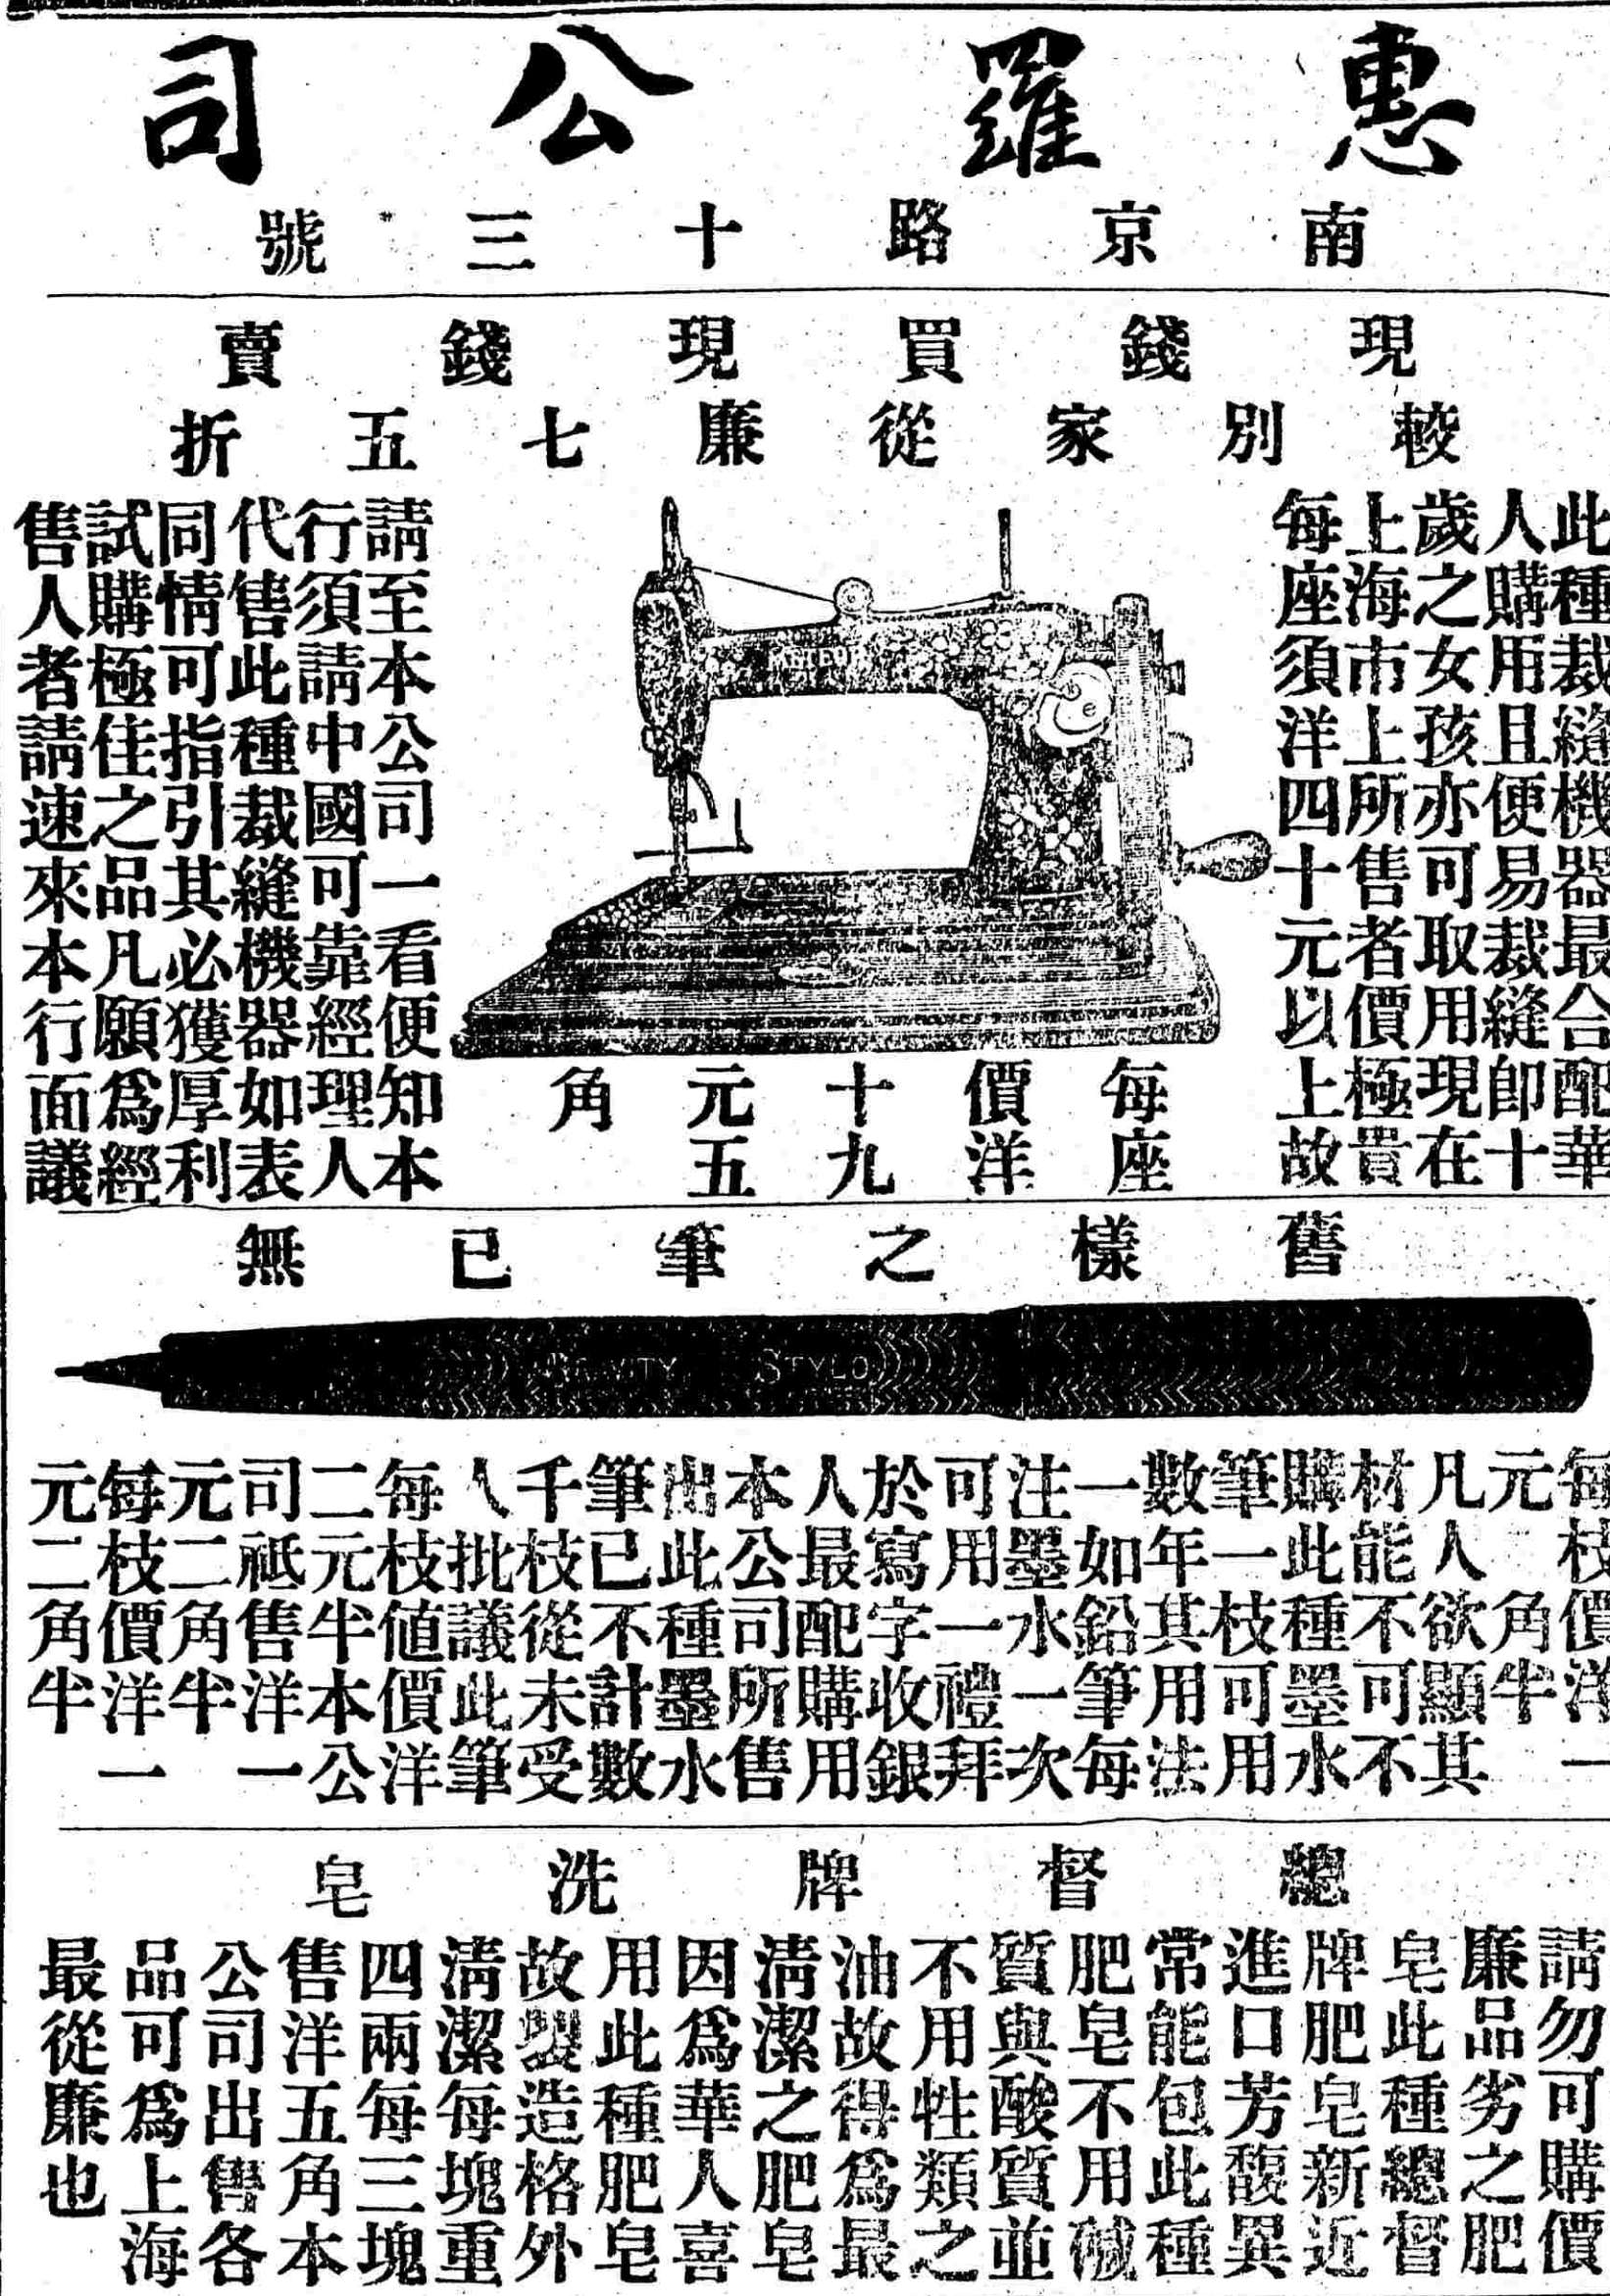 惠羅公司
南京路十三號
現錢買現錢賣
較別家從廉七五折
此種裁縫機器最合配華
人購用且便易裁縫卽十
歲之女孩亦可取用現在
上海市上所售者價極貴
每座須洋四十元以上故
METEOR
每座
價洋
十九
元五
角
請至本公司一看便知本
行須請中國可靠經理人
代售此種裁縫機器如表
同情可指引其必獲厚利
試購極佳之品凡願爲經
售人者請速來本行面議
舊樣之筆已無
GRAVITY STYLO
每枝價洋一
元 角半
凡人欲顯其
材能不可不
購此種墨水
筆一枝可用
數年其用法
一如鉛筆每
注墨水一次
可用一禮拜
於寫字收銀
人最配購用
本公司所售
出此種墨水
筆已不計數
千枝從未受
人批議此筆
每枝値價洋
二元半本公
司祗售洋一
元二角半
每枝價洋一
元二角半
總督牌洗皂
請勿可購價
廉品劣之肥
皂此種總督
牌肥皂新近
進口芳馥異
常能包此種
肥皂不用碱
質與酸質並
不用牲類之
油故得爲最
清潔之肥皂
因爲華人喜
用此種肥皂
故製造格外
清潔每塊重
四兩每三塊
售洋五角本
公司出售各
品可爲上海
最從廉也